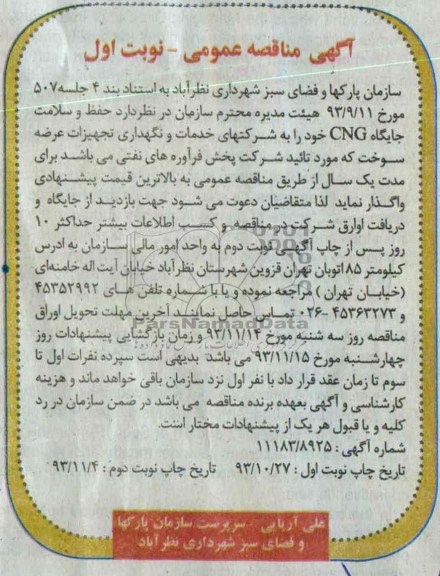 آگهی مناقصه عمومی - نوبت اول
سازمان پارکها و فضای سبز شهرداری نظرآباد به استناد بند ۴ جلسه ۵۰۷
مورخ ۹۳/۹/۱۱ هیئت مدیره محترم سازمان در نظردارد حفظ و سلامت
جایگاه CNG خود را به شرکتهای خدمات و نگهداری تجهیزات عرضه
سوخت که مورد تائید شرکت پخش فرآورده های نفتی می باشد برای
مدت یک سال از طریق مناقصه عمومی به بالاترین قیمت پیشنهادی
واگذار نماید لذا متقاضیان دعوت می شود جهت بازدید از جایگاه و
دریافت اوراق شرکت در مناقصه و کسب اطلاعات بیشتر حداکثر ۱۰
روز پس از چاپ آگهی نوبت دوم به واحد امور مالی سازمان به ادرس
کیلومتر ۸۵ اتوبان تهران قزوین شهرستان نظرآباد خیابان آیت اله خامنه‌ای
(خیابان تهران ) مراجعه نموده و یا با شماره تلفن های ۴۵۳۵۲۹۹۲
و ۴۵۳۶۳۲۷۳ -۰۲۶ تماس حاصل نمایند آخرین مهلت تحویل اوراق
مناقصه روز سه شنبه مورخ ۹۳/۱۱/۱۴ و زمان بازگشایی پیشنهادات روز
چهارشنبه مورخ ۹۳/۱۱/۱۵ می باشد بدیهی است سپرده نفرات اول تا
سوم تا زمان عقد قرار داد با نفر اول نزد سازمان باقی خواهد ماند و هزینه
کارشناسی و آگهی بعهده برنده مناقصه می باشد در ضمن سازمان در رد
کلیه و یا قبول هر یک از پیشنهادات مختار است.
شماره آگهی : ۱۱۱۸۳/۸۹۲۵
تاریخ چاپ نوبت اول : ۹۳/۱۰/۲۷ تاریخ چاپ نوبت دوم : ۹۳/۱۱/۴
علی آریایی - سرپرست سازمان پارکها
و فضای سبز شهرداری نظرآباد
ParsNamadData